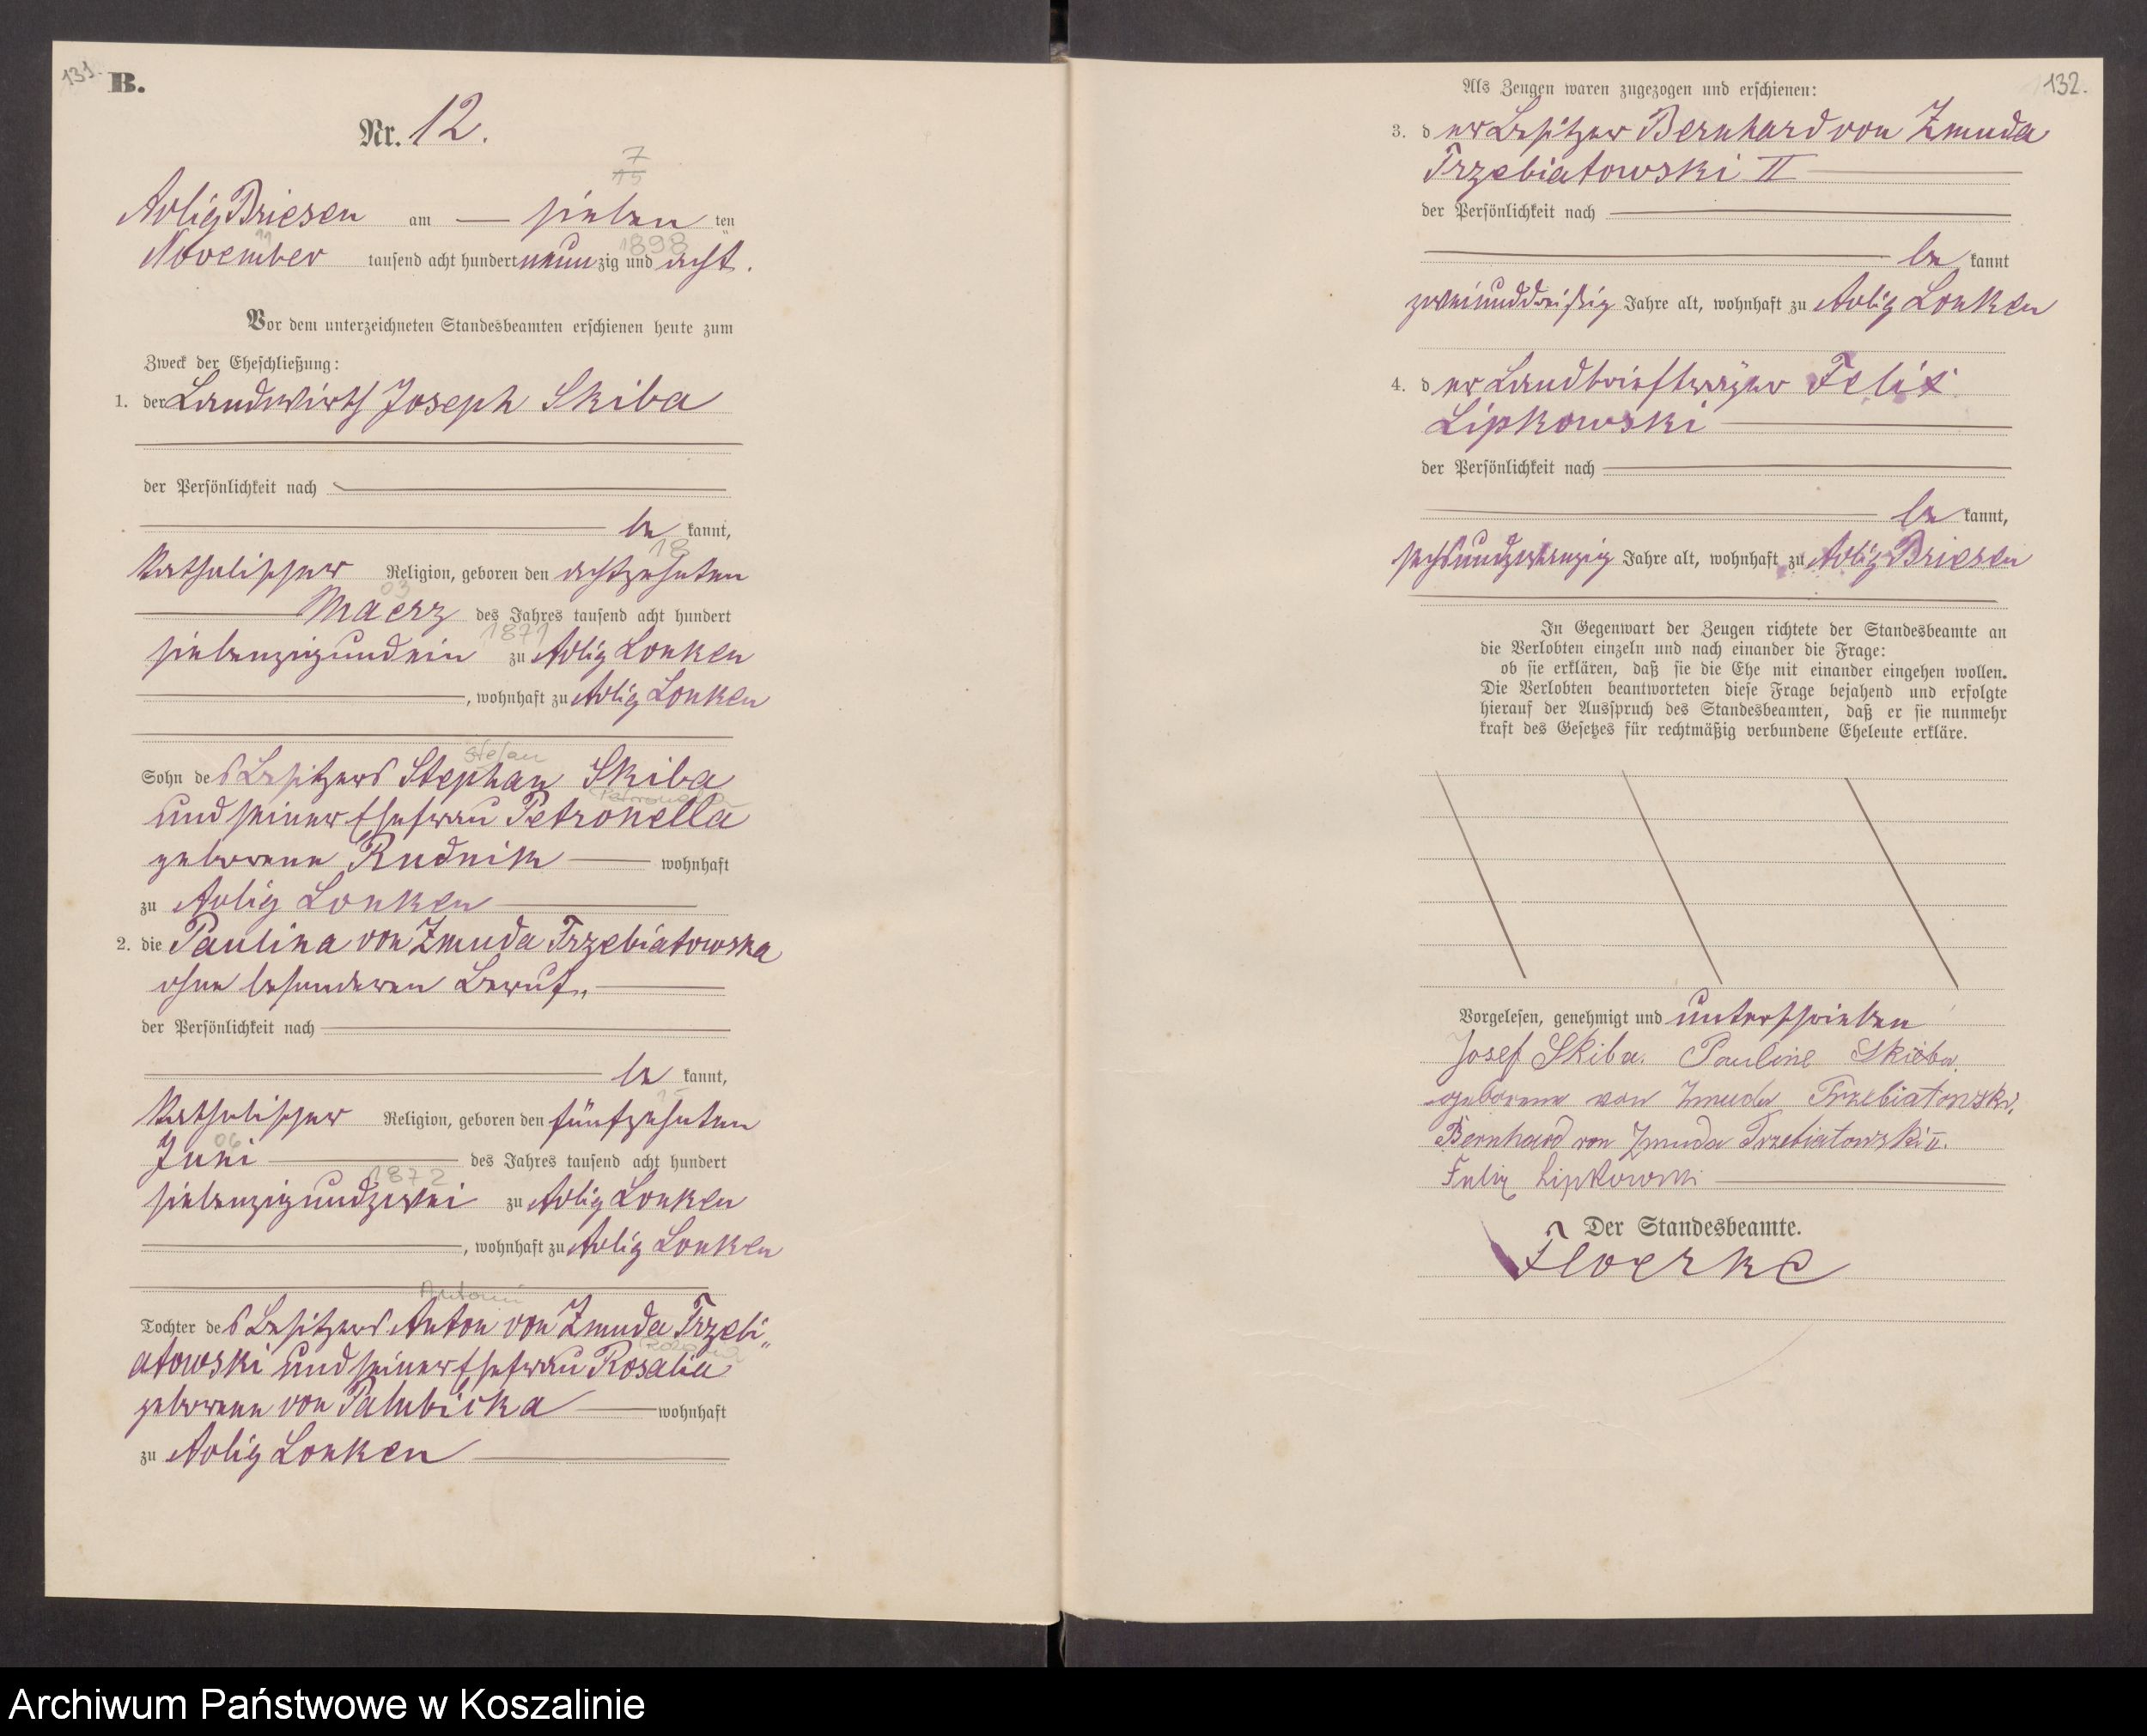 131.
B.
Nr. 12.
7
15
Adlig Briesen am — sieben ten
11 1898
November tausend acht hundert neunzig und acht.
Vor dem unterzeichneten Standesbeamten erschienen heute zum
Zweck der Eheschließung:
1. der Landwirth Joseph Skiba
der Persönlichkeit nach
be kannt,
18
katholischer Religion, geboren den achtzehnten
03
Maerz des Jahres tausend acht hundert
1871
siebenzig und ein zu Adlig Lonken
, wohnhaft zu Adlig Lonken
Stefan
Sohn des Besitzers Stephan Skiba
Petronela
und seiner Ehefrau Petronella
geborene Rudnik wohnhaft
zu Adlig Lonken
2. die Paulina von Zmuda Trzebiatowska
ohne besonderen Beruf,
der Persönlichkeit nach
be kannt,
15
katholischer Religion, geboren den fünfzehnten
06
Juni des Jahres tausend acht hundert
1872
siebenzig und zwei zu Adlig Lonken
, wohnhaft zu Adlig Lonken
Antoni
Tochter des Besitzers Anton von Zmuda Trzebi„
Rozalia
atowski und seiner Ehefrau Rosalia
geborene von Palubicka wohnhaft
zu Adlig Lonken
132.
Als Zeugen waren zugezogen und erschienen:
3. der Besitzer Bernhard von Zmuda
Trzebiatowski II
der Persönlichkeit nach
be kannt
zweiunddreißig Jahre alt, wohnhaft zu Adlig Lonken
4. der Landbriefträger Felix
Lipkowski
der Persönlichkeit nach
be kannt,
sechsundzwanzig Jahre alt, wohnhaft zu Adlig Briesen
In Gegenwart der Zeugen richtete der Standesbeamte an
die Verlobten einzeln und nach einander die Frage:
ob sie erklären, daß sie die Ehe mit einander eingehen wollen.
Die Verlobten beantworteten diese Frage bejahend und erfolgte
hierauf der Ausspruch des Standesbeamten, daß er sie nunmehr
kraft des Gesetzes für rechtmäßig verbundene Eheleute erkläre.
Vorgelesen, genehmigt und unterschrieben
Josef Skiba. Pauline Skiba.
geborene von Zmuda Trzebiatowski.
Bernhard von Zmuda Trzebiatowski II.
Felix Lipkowski
Der Standesbeamte.
Floerke
Archiwum Państwowe w Koszalinie